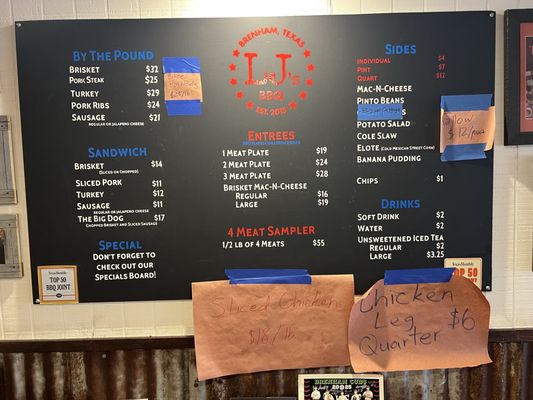 BY THE POUND
BRISKET $32
PORK STEAK $25
TURKEY $29
PORK RIBS $24
SAUSAGE $21
REGULAR OR JALAPENO CHEESE
SANDWICH
BRISKET $14
(SLICED OR CHOPPED)
SLICED PORK $11
TURKEY $12
SAUSAGE $11
REGULAR OR JALAPENO CHEESE
THE BIG DOG $17
CHOPPED BRISKET AND SAUSAGE
SPECIAL
DON'T FORGET TO
CHECK OUT OUR
SPECIALS BOARD!
TexasMonthly
TOP 50
BBQ JOINT
BRENHAM, TEXAS
LJ'S
BBQ
EST. 2013
ENTREES
1 MEAT PLATE $19
2 MEAT PLATE $24
3 MEAT PLATE $28
BRISKET MAC-N-CHEESE
REGULAR $16
LARGE $19
4 MEAT SAMPLER
1/2 LB OF 4 MEATS $55
SIDES
INDIVIDUAL $4
PINT $7
QUART $12
MAC-N-CHEESE
PINTO BEANS
POTATO SALAD
COLE SLAW
ELOTE (COLD MEXICAN STREET CORN)
BANANA PUDDING
CHIPS $1
DRINKS
SOFT DRINK $2
WATER $2
UNSWEETENED ICED TEA
REGULAR $2
LARGE $3.25
TexasMonthly
TOP 50
Sliced Chicken
$18/lb
Chicken
Leg $6
Quarter
BRENHAM CUBS